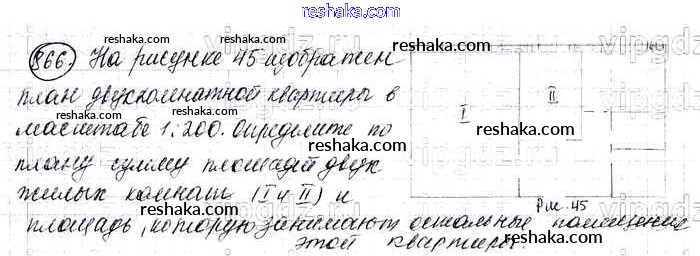 reshaka.com
866. На рисунке 45 изображен
reshaka.com reshaka.com
план двухкомнатной квартиры в
масштабе 1:200. Определите по
reshaka.com reshaka.com
плану сумму площадей двух
жилых комнат (I и II) и
площадь, которую занимают остальные помещения
этой квартиры.
reshaka.com reshaka.com
I
II
Рис. 45
vipgdz